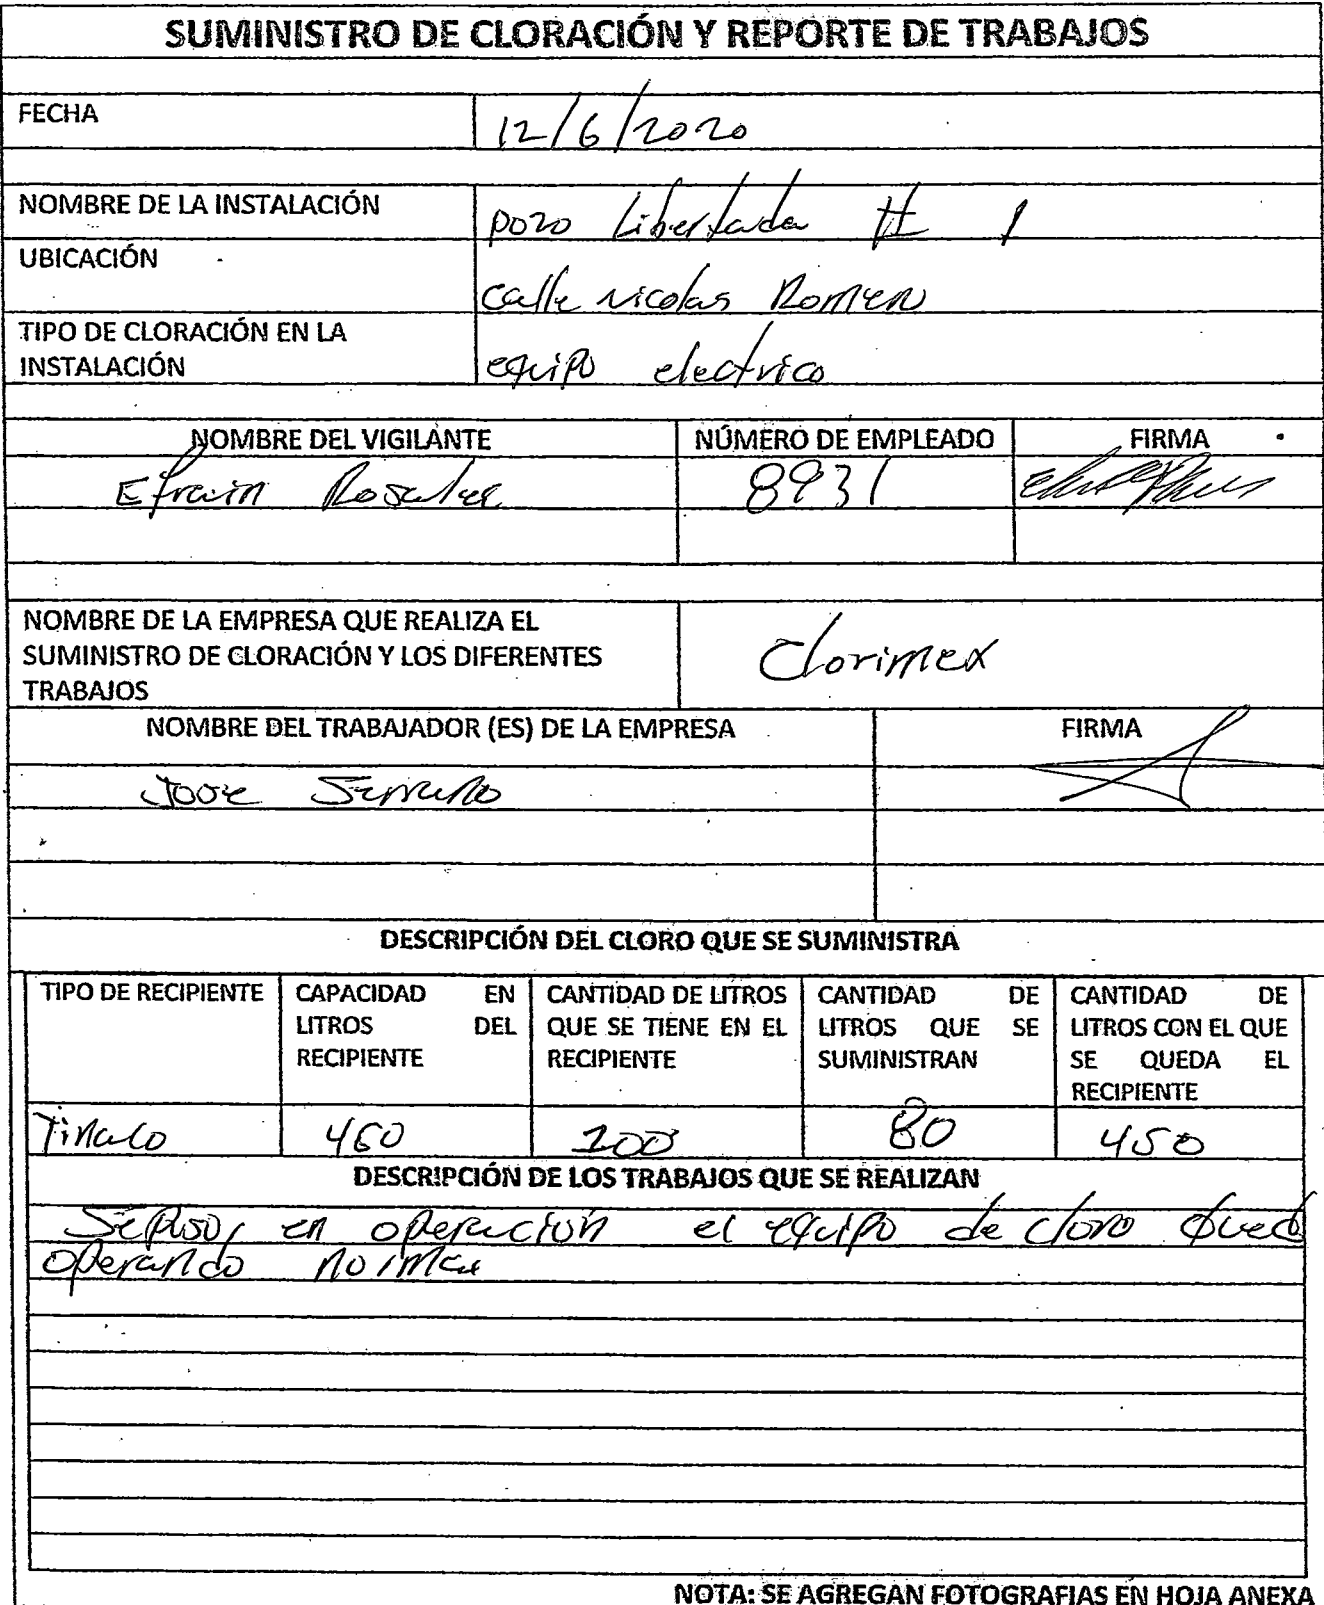 SUMINISTRO DE CLORACIÓN Y REPORTE DE TRABAJOS
FECHA 12/6/2020
NOMBRE DE LA INSTALACIÓN pozo Libertada # 1
UBICACIÓN calle nicolas Romero
TIPO DE CLORACIÓN EN LA
INSTALACIÓN equipo electrico
NOMBRE DEL VIGILANTE NÚMERO DE EMPLEADO FIRMA
Efrain Rosales 8931
NOMBRE DE LA EMPRESA QUE REALIZA EL
SUMINISTRO DE CLORACIÓN Y LOS DIFERENTES
TRABAJOS
Clorimex
NOMBRE DEL TRABAJADOR (ES) DE LA EMPRESA FIRMA
Jose Serrano
DESCRIPCIÓN DEL CLORO QUE SE SUMINISTRA
TIPO DE RECIPIENTE
CAPACIDAD EN
LITROS DEL
RECIPIENTE
CANTIDAD DE LITROS
QUE SE TIENE EN EL
RECIPIENTE
CANTIDAD DE
LITROS QUE SE
SUMINISTRAN
CANTIDAD DE
LITROS CON EL QUE
SE QUEDA EL
RECIPIENTE
Tinaco 80 450
DESCRIPCIÓN DE LOS TRABAJOS QUE SE REALIZAN
Se puso en operacion el equipo de cloro Quedo
operando normal
NOTA: SE AGREGAN FOTOGRAFIAS EN HOJA ANEXA